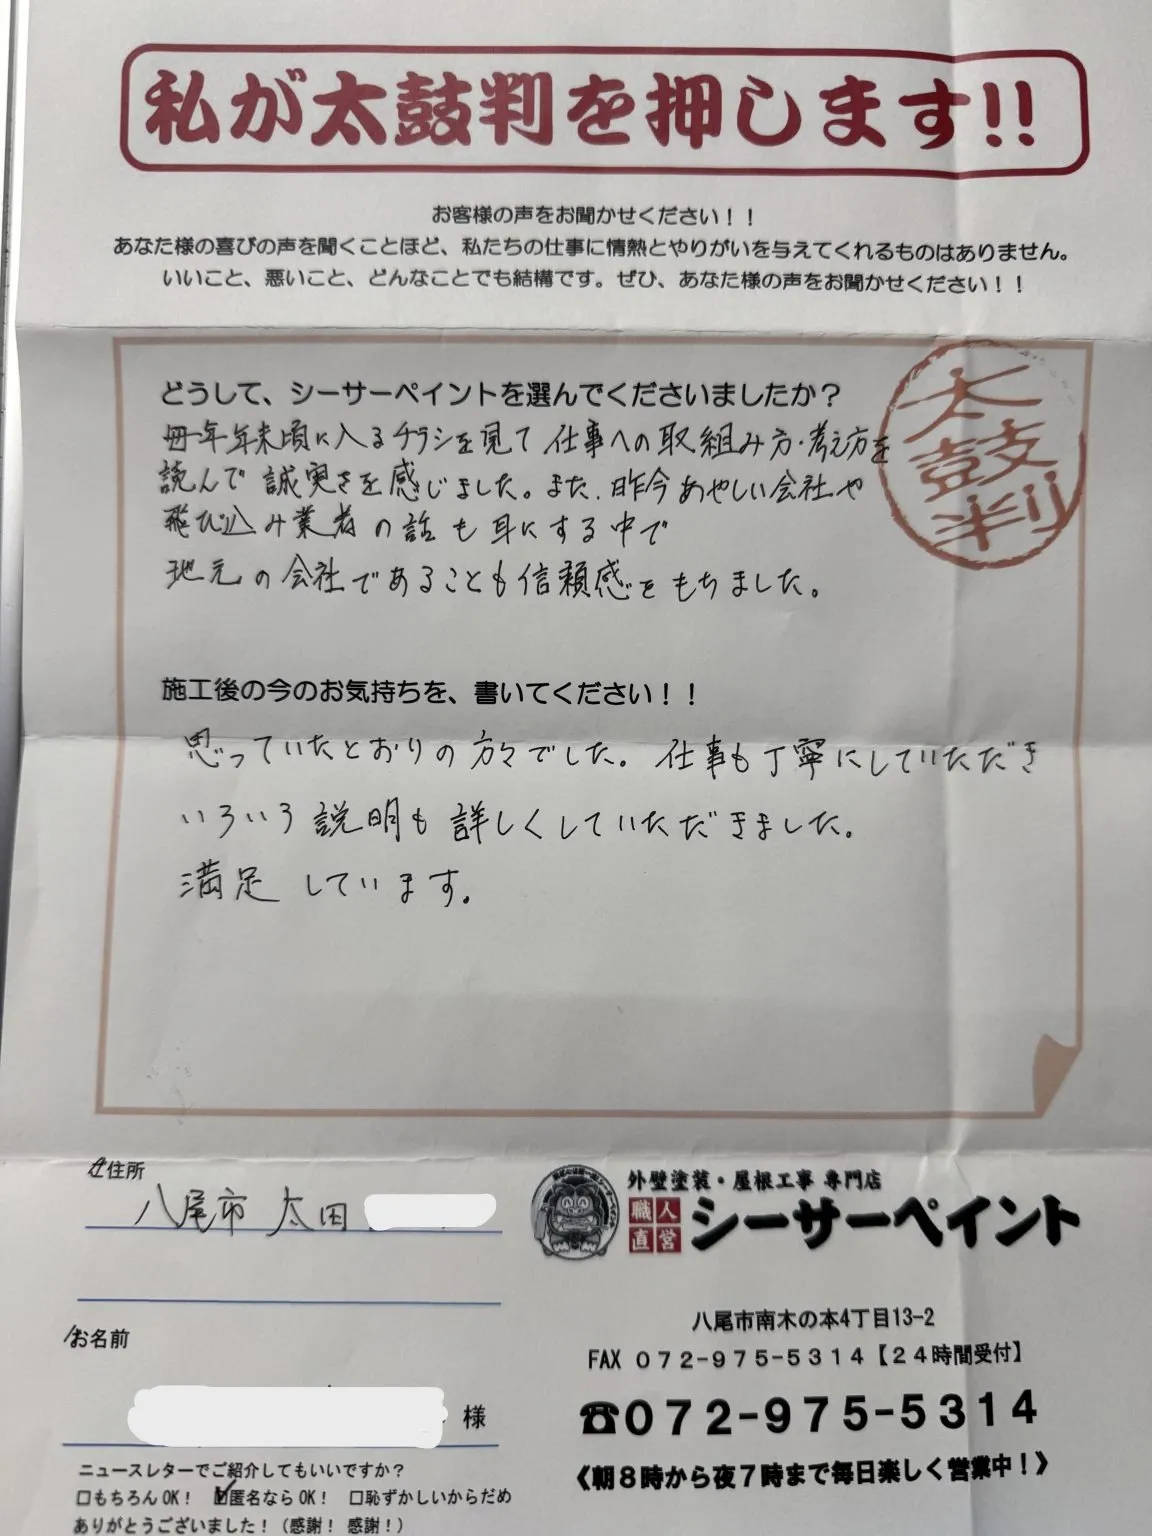 私が太鼓判を押します!!
お客様の声をお聞かせください！！
あなた様の喜びの声を聞くことほど、私たちの仕事に情熱とやりがいを与えてくれるものはありません。
いいこと、悪いこと、どんなことでも結構です。ぜひ、あなた様の声をお聞かせください！！
太鼓判
どうして、シーサーペイントを選んでくださいましたか？
毎年年末頃に入るチラシを見て仕事への取組み方・考え方を
読んで誠実さを感じました。また、昨今あやしい会社や
飛び込み業者の話も耳にする中で
地元の会社であることも信頼感をもちました。
施工後の今のお気持ちを、書いてください！！
思っていたとおりの方々でした。仕事も丁寧にしていただき
いろいろ説明も詳しくしていただきました。
満足しています。
ご住所
八尾市 太田
お名前
様
ニュースレターでご紹介してもいいですか？
□もちろんOK！ ☑匿名ならOK！ □恥ずかしいからだめ
ありがとうございました！（感謝！感謝！）
外壁塗装・屋根工事 専門店
職人直営 シーサーペイント
八尾市南木の本4丁目13-2
FAX 072-975-5314【24時間受付】
☎072-975-5314
《朝8時から夜7時まで毎日楽しく営業中！》